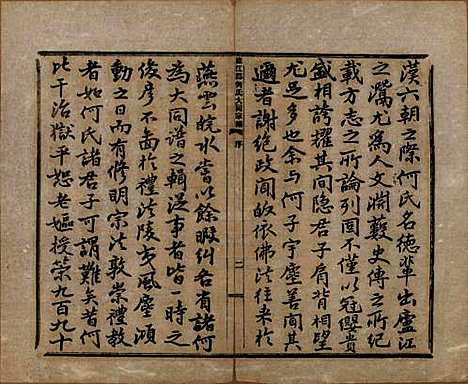 漢六朝之際何氏名德輩出廬江
之灊尤為人文淵藪史傳之所紀
載方志之所論列固不僅以冠纓貴
盛相誇耀其間隱君子肩背相望
尤足多也余与何子宇塵善聞其
邇者謝絕政聞皈依佛法往来於
廬江郡何氏大同宗譜
序
二
燕雲皖水嘗以餘暇糾合有諸何
為大同譜之輯湜事者皆一時之
俊彥不囿於禮法陵夷風塵澒
動之日而有修明宗法敦崇禮教
者如何氏諸君子可謂難矣昔何
比干治獄平恕老嫗授策九百九十